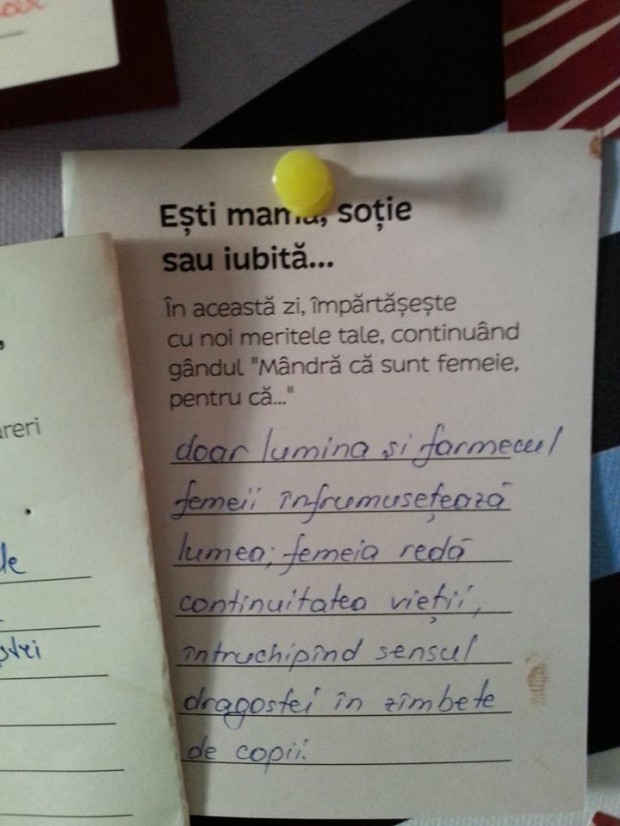 Ești mamă, soție
sau iubită...
În această zi, împărtășește
cu noi meritele tale, continuând
gândul "Mândră că sunt femeie,
pentru că..."
doar lumina și farmecul
femeii înfrumusețează
lumea; femeia redă
continuitatea vieții,
întruchipînd sensul
dragostei în zîmbete
de copii.